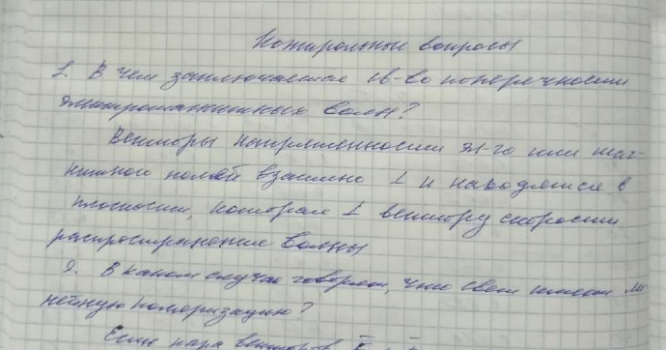 Контрольные вопросы
1. В чем заключается св-во поперечности
электромагнитных волн?
Векторы напряженности эл-го или маг-
нитного полей взаимно ⊥ и находятся в
плоскости, которая ⊥ вектору скорости
распространения волны
2. В каком случае говорят, что свет имеет ли
нейную поляризацию?
Если пара векторов